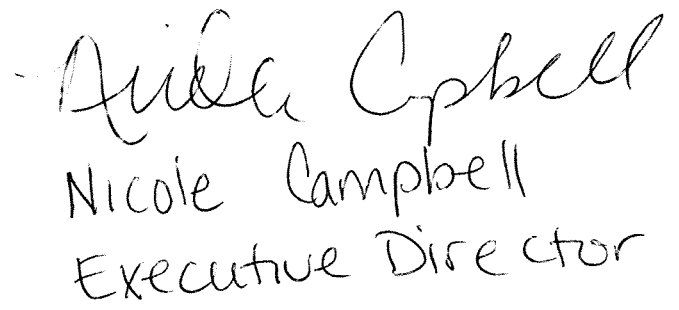 Nicole Campbell
Nicole Campbell
Executive Director